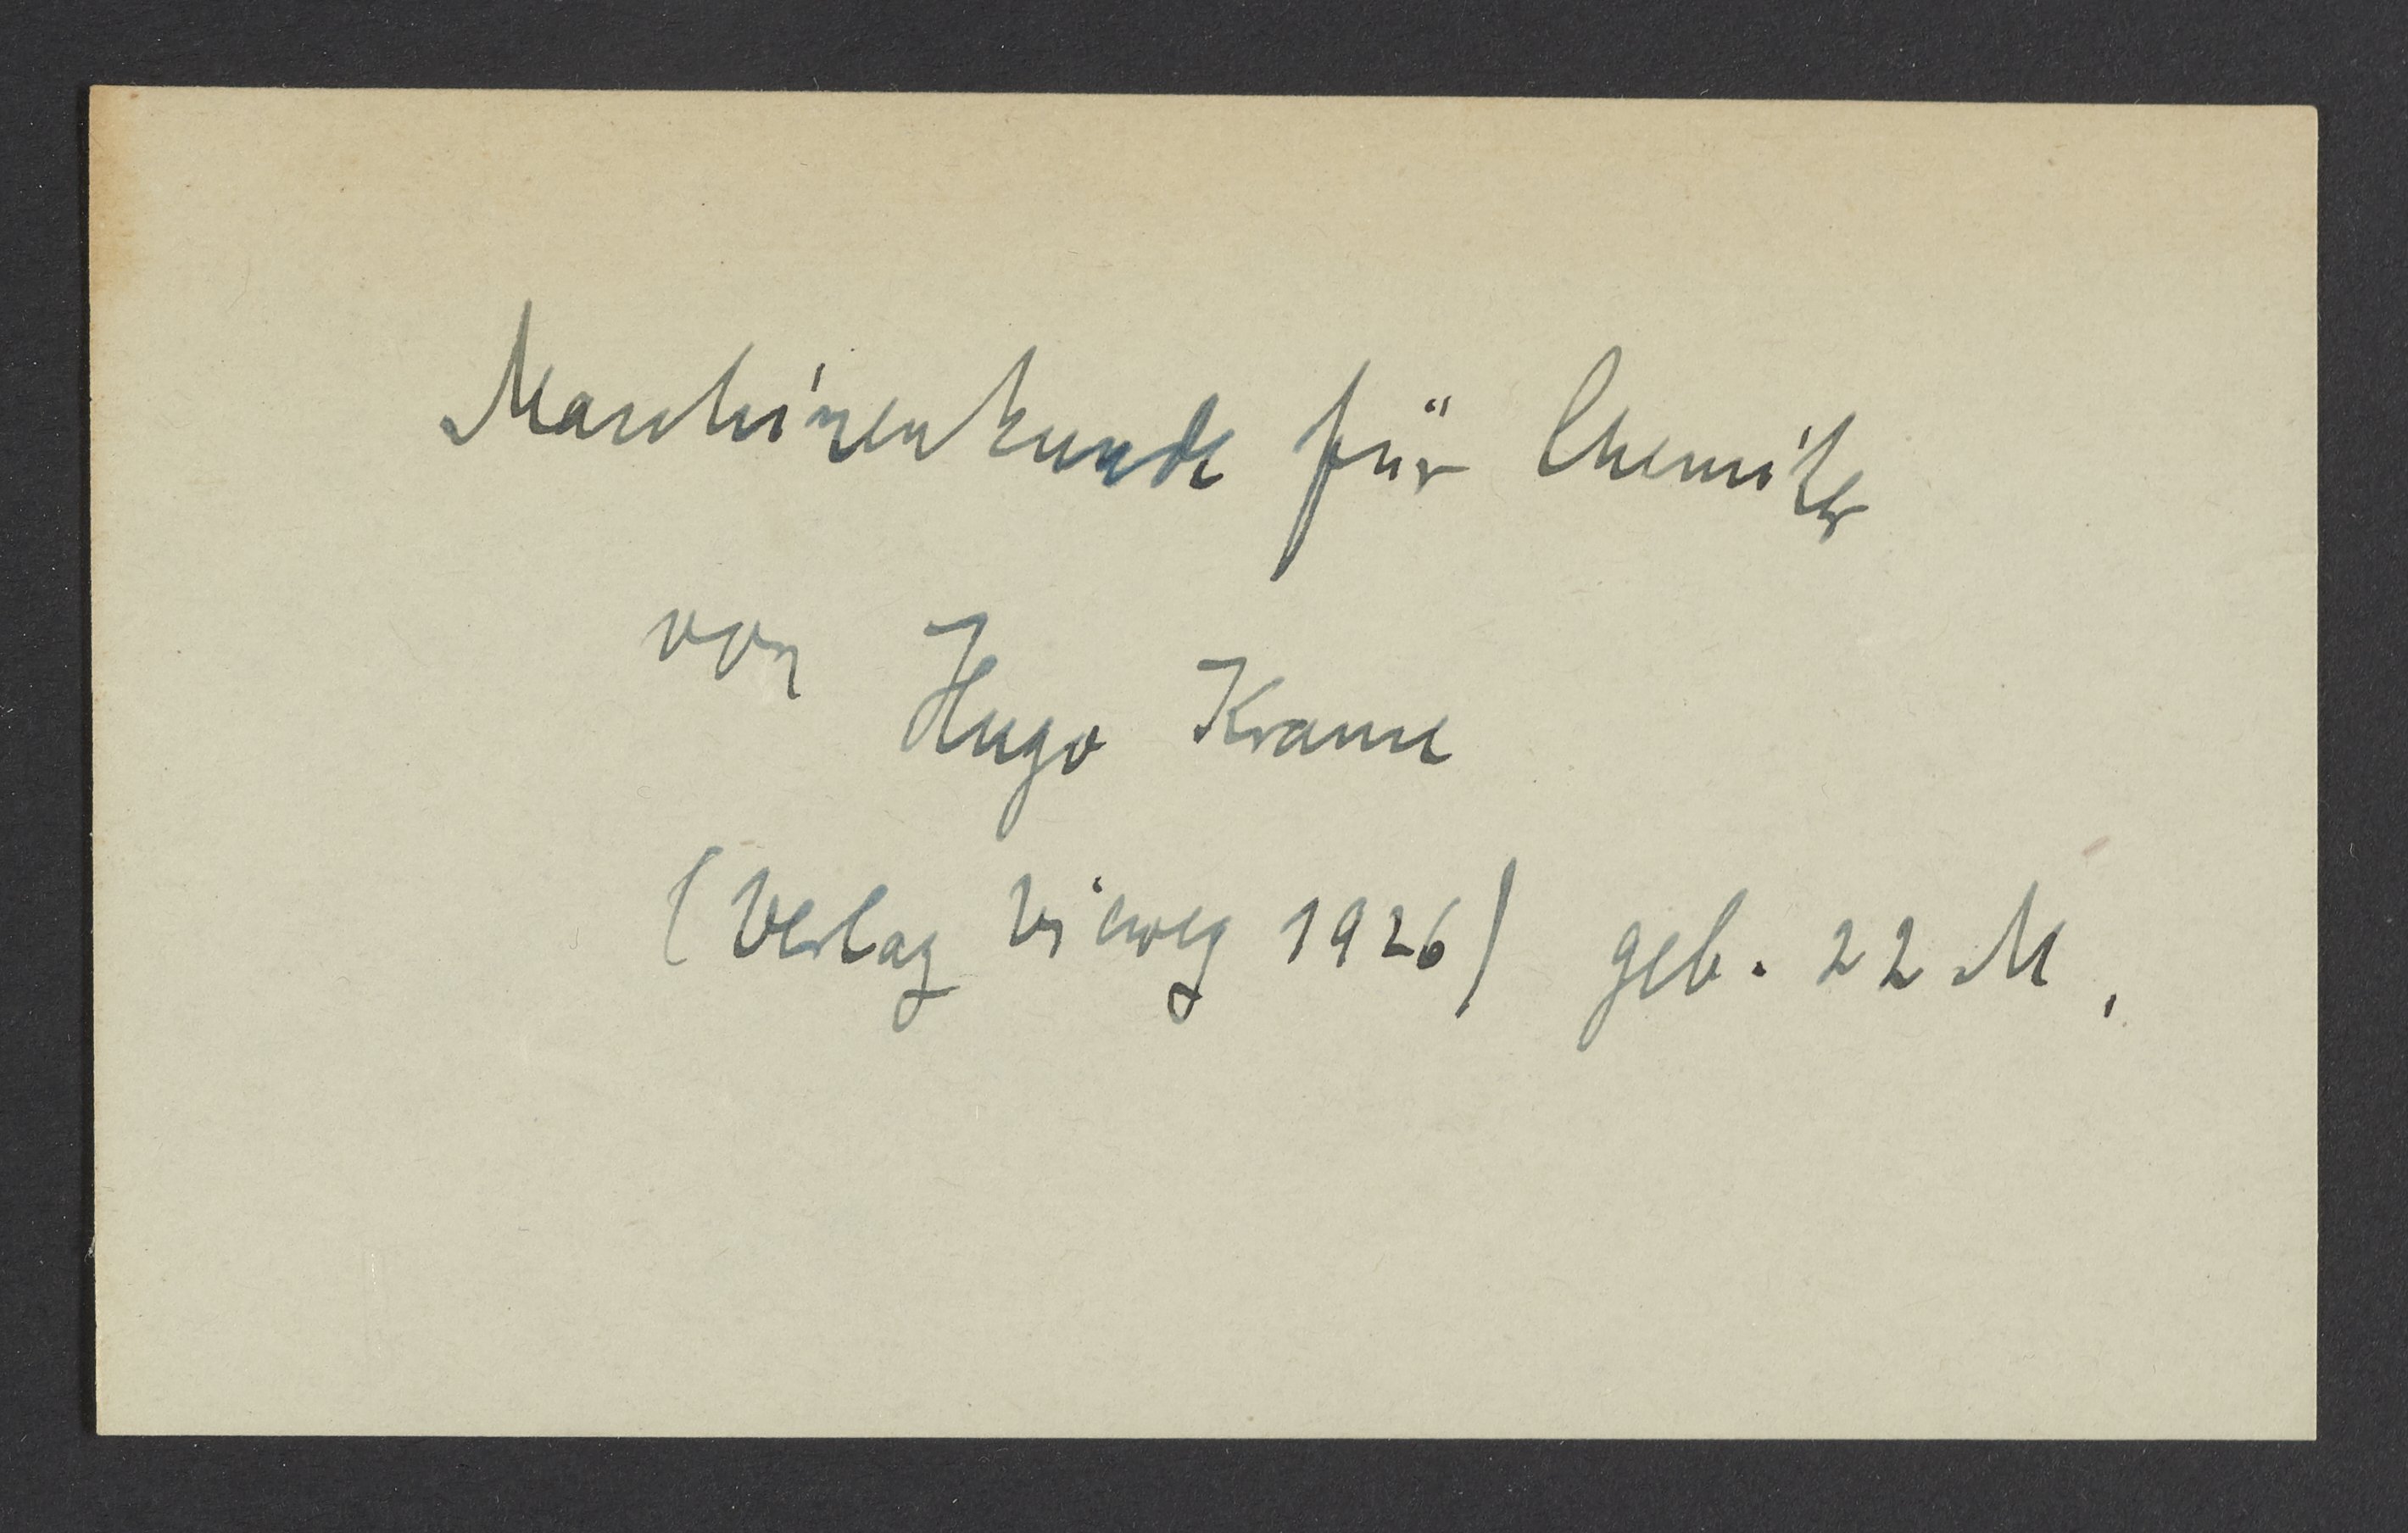 Maschinenkunde für Chemiker
von Hugo Krause
(Verlag Vieweg 1926) geb. 22 M.